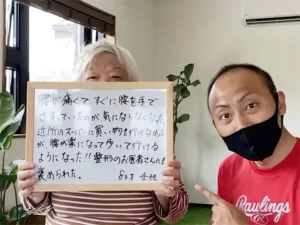 腰が痛くてすぐに腰を手で
さすっていたのが気にならなくなった
近所のスーパーに買い物も行けなかった
が腰が楽になって歩いて行ける
ようになった!!整形のお医者さんにも
褒められた。 80才 女性
Rawlings